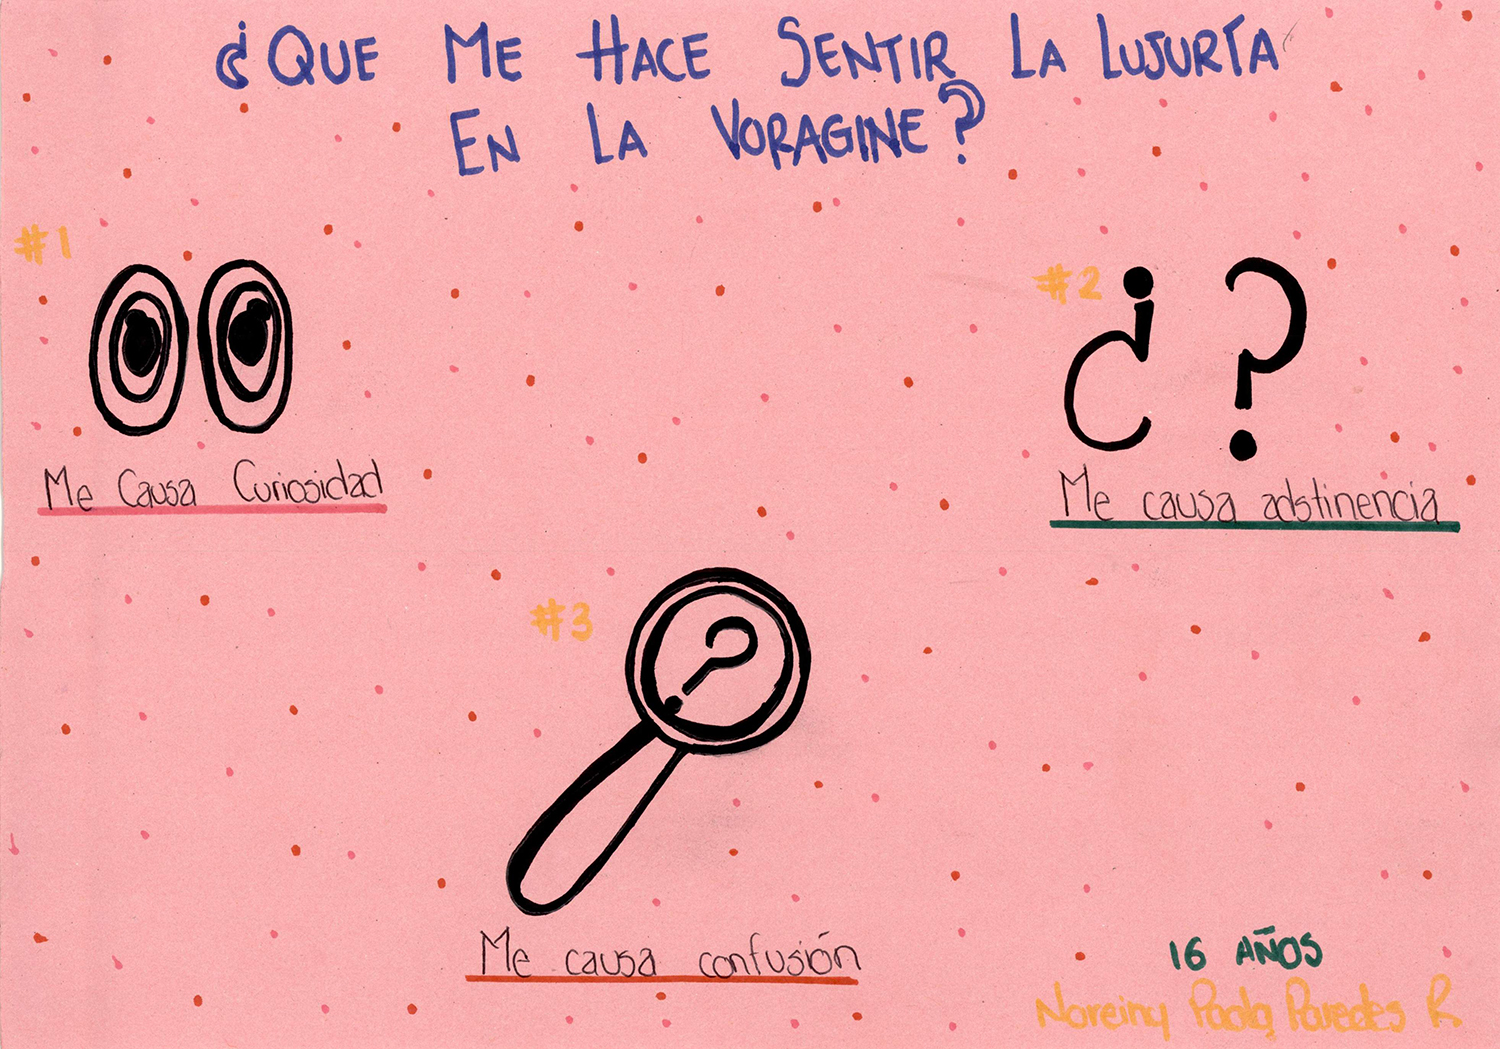 ¿QUE ME HACE SENTIR LA LUJURÍA
EN LA VORAGINE?
#1
Me Causa Curiosidad
#2
¿ ?
Me causa adstinencia
#3
?
Me causa confusión
16 AÑOS
Noreiny Paola Paredes R